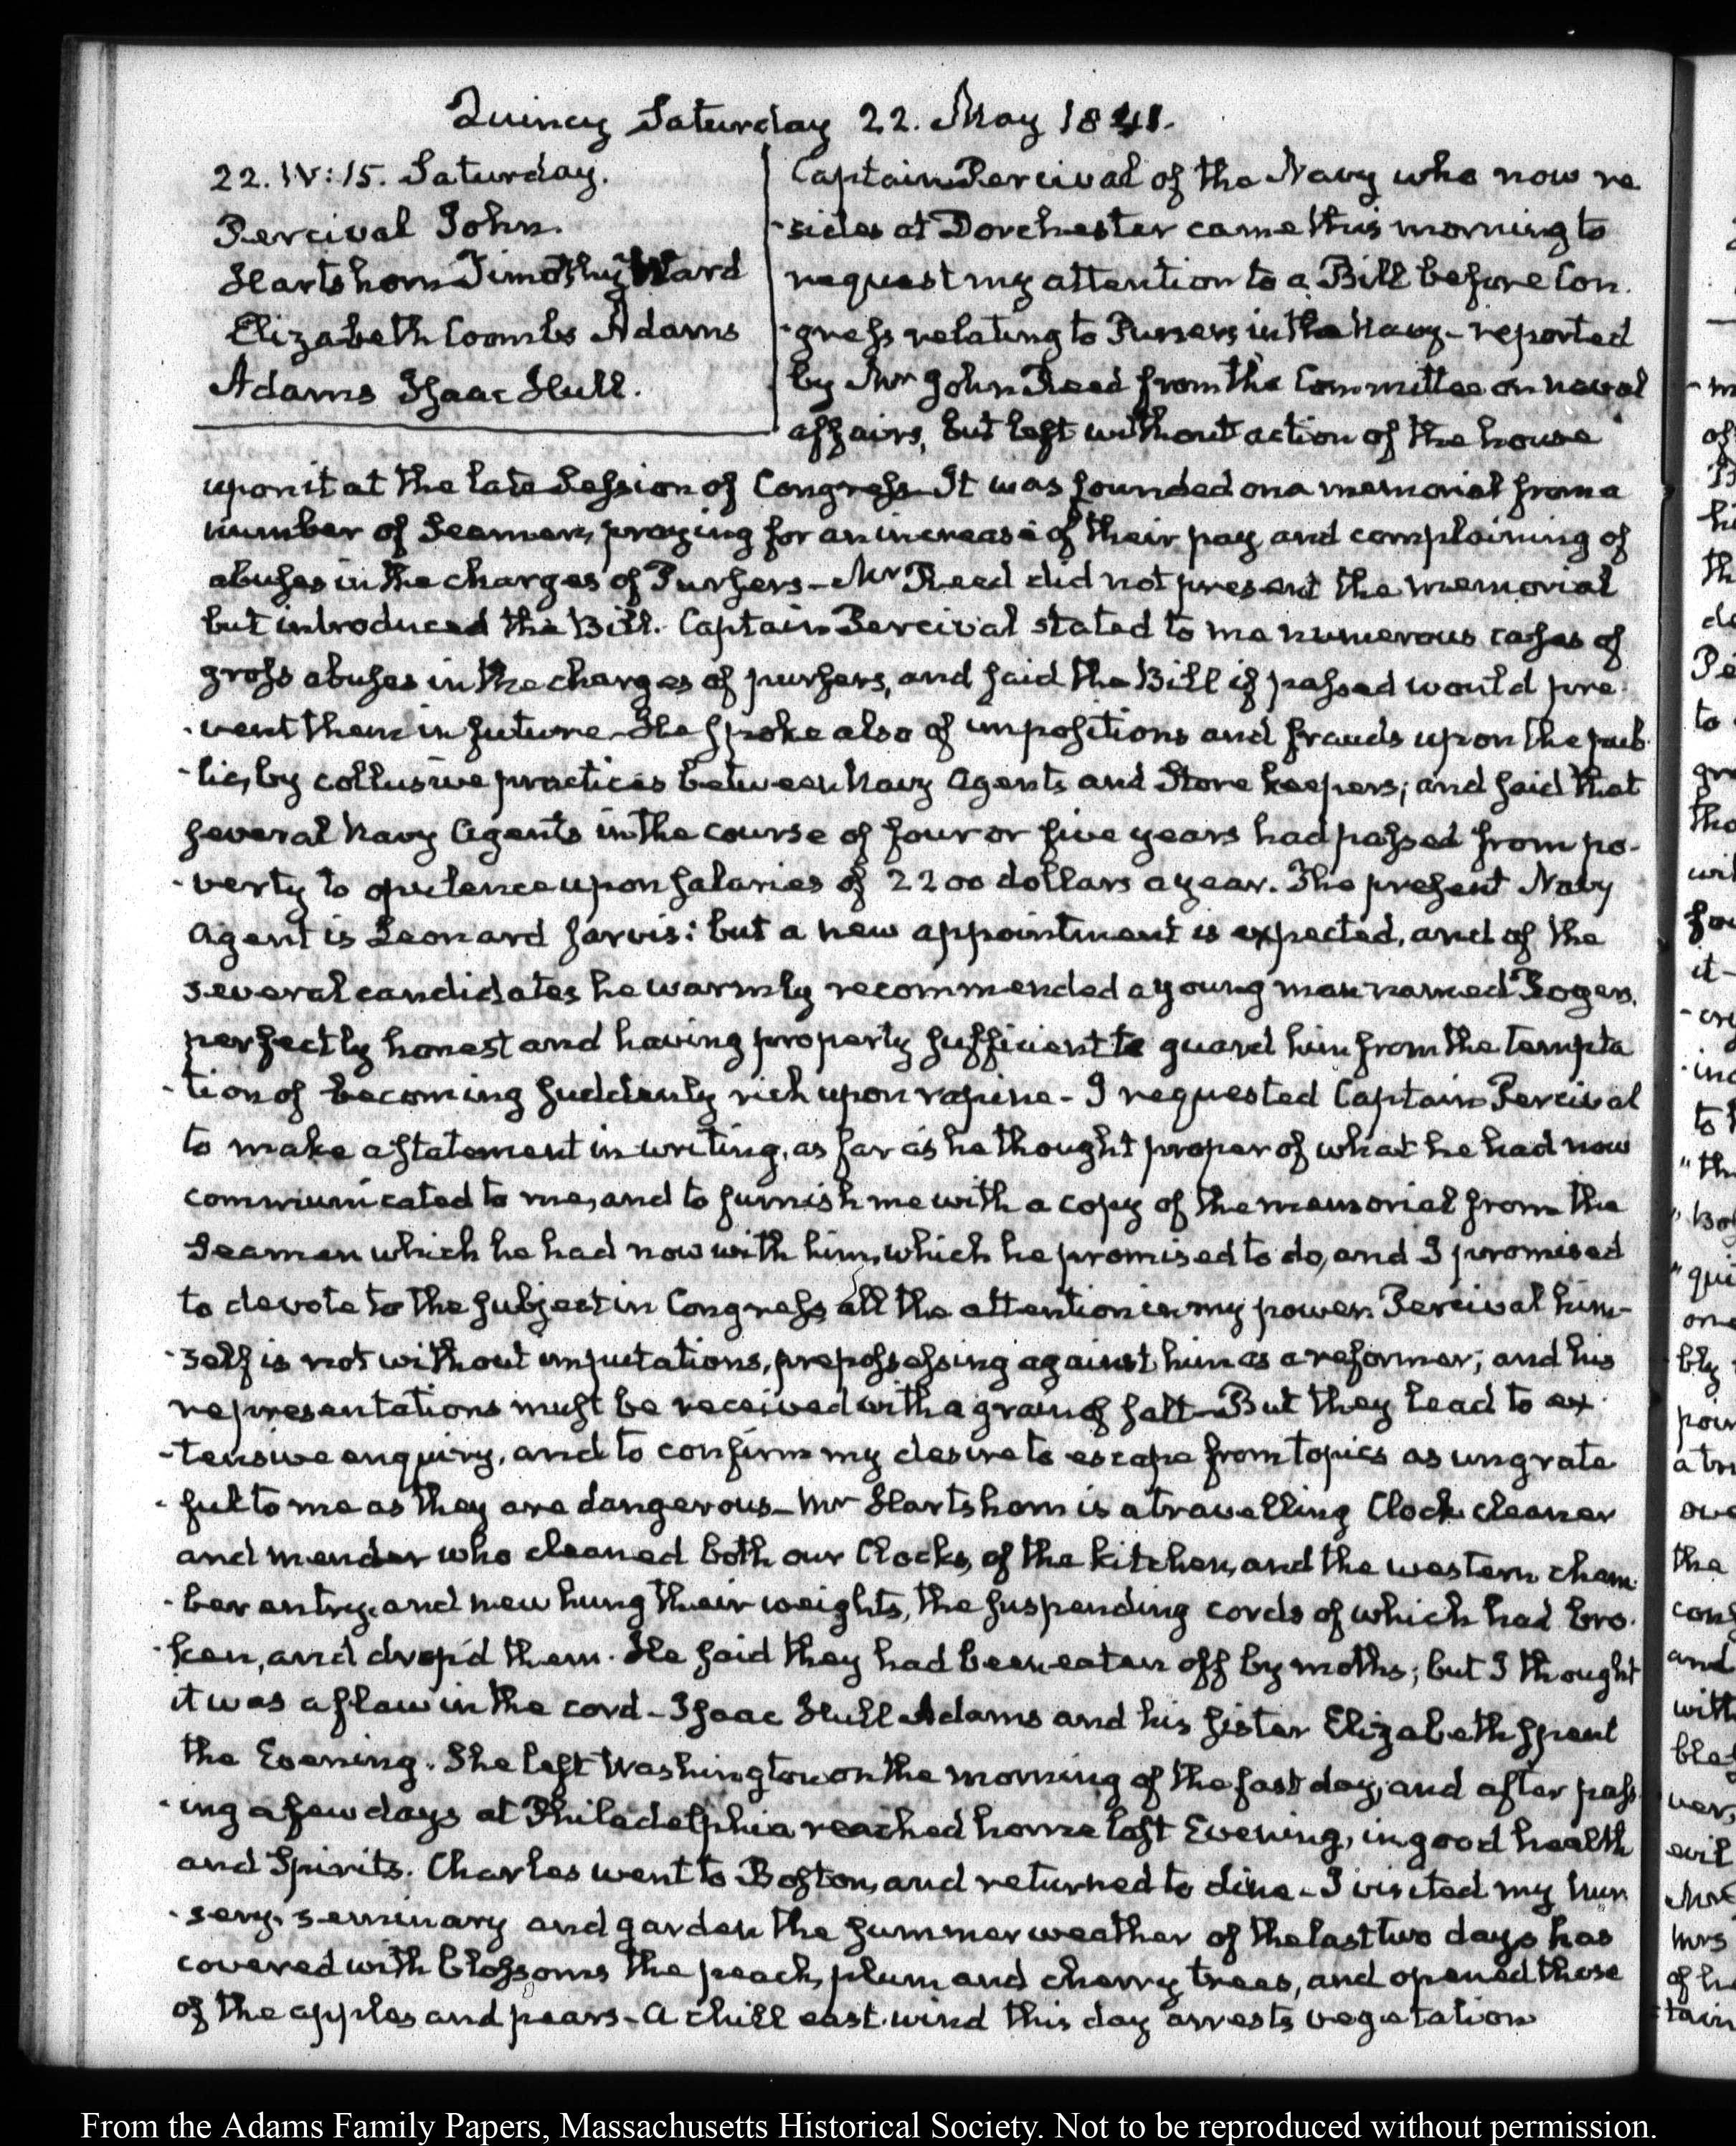 Quincy Saturday 22. May 1841.
22. IV:15. Saturday.
Percival John.
Hartshorn Timothy Ward
Elizabeth Coombs Adams
Adams Isaac Hull.
Captain Percival of the Navy who now re
-sides at Dorchester came this morning to
request my attention to a Bill before Con.
-gress relating to Pursers in the Navy - reported
by Mr John Reed from the Committee on naval
affairs, but left without action of the house
upon it at the late Session of Congress - It was founded on a memorial from a
number of Seamen, praying for an increase of their pay and complaining of
abuses in the charges of Pursers - Mr Reed did not present the memorial
but introduced the Bill. Captain Percival stated to me numerous cases of
gross abuses in the charges of pursers, and said the Bill if passed would pre
-vent them in future - He spoke also of impositions and frauds upon the pub
-lic, by collusive practices between Navy Agents and Store keepers; and said that
several Navy Agents in the course of four or five years had passed from po-
-verty to opulence upon salaries of 2200 dollars a year. The present Navy
Agent is Leonard Jarvis: but a new appointment is expected, and of the
several candidates he warmly recommended a young man named Rogers,
perfectly honest and having property sufficient to guard him from the tempta
-tion of becoming suddenly rich upon rapine - I requested Captain Percival
to make a statement in writing, as far as he thought proper of what he had now
communicated to me, and to furnish me with a copy of the memorial from the
Seamen which he had now with him, which he promised to do, and I promised
to devote to the subject in Congress all the attention in my power. Percival him-
-self is not without imputations, prepossessing against him as a reformer; and his
representations must be received with a grain of salt - But they lead to ex
-tensive enquiry, and to confirm my desire to escape from topics as ungrate
-ful to me as they are dangerous - Mr Hartshorn is a travelling Clock cleaner
and mender who cleaned both our Clocks, of the kitchen, and the western cham
-ber entry, and new hung their weights, the suspending cords of which had bro.
-ken, and drop'd them. He said they had been eaten off by moths; but I thought
it was a flaw in the cord - Isaac Hull Adams and his sister Elizabeth spent
the Evening. She left Washington on the morning of the fast day, and after pass
-ing a few days at Philadelphia reached home last Evening, in good health
and Spirits. Charles went to Boston, and returned to dine - I visited my nur
-sery, seminary and garden the summer weather of the last two days has
covered with blossoms the peach, plum and cherry trees, and opened those
of the apples and pears - A chill east wind this day arrests vegetation
From the Adams Family Papers, Massachusetts Historical Society. Not to be reproduced without permission.